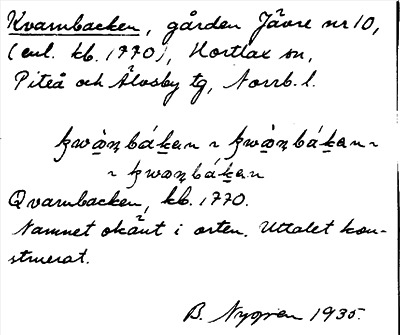 Kvarnbacken, gården Jävre nr 10,
(enl. kb. 1770), Hortlax sn,
Piteå och Älvsby tg, Norrb. l.
ꞗwὰṇbákan ~ ꞗwὰṇbákan ~
~ ꞗwaṇbákan
Qvarnbacken, kb. 1770.
Namnet okänt i orten. Uttalet kon-
struerat.
B. Nygren 1935.